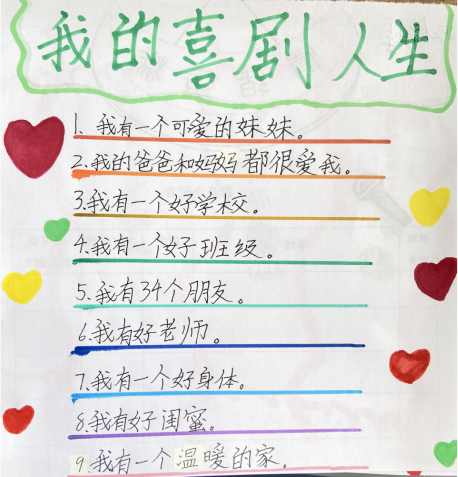 我的喜剧人生
1. 我有一个可爱的妹妹。
2.我的爸爸和妈妈都很爱我。
3.我有一个好学校。
4.我有一个好班级。
5.我有34个朋友。
6.我有好老师。
7.我有一个好身体。
8.我有好闺蜜。
9.我有一个温暖的家。